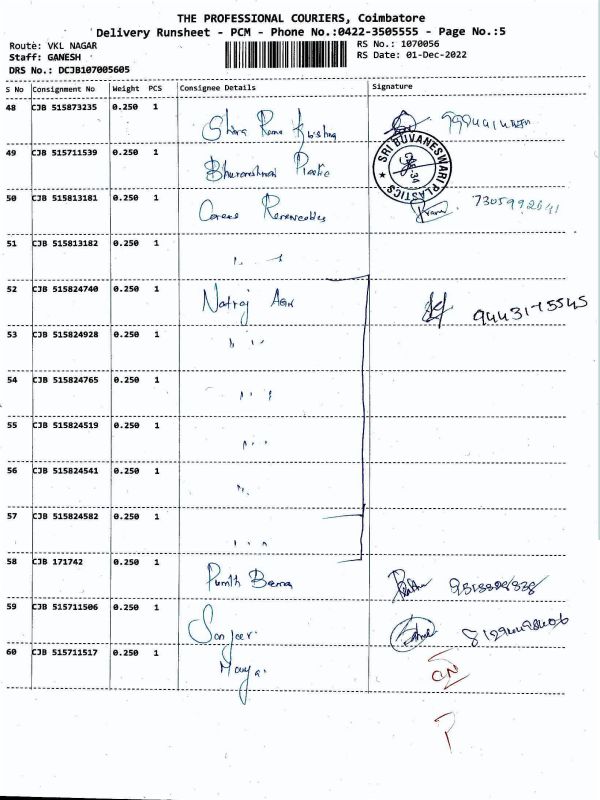 THE PROFESSIONAL COURIERS, Coimbatore
Delivery Runsheet - PCM - Phone No.:0422-3505555 - Page No.:5
Route: VKL NAGAR
RS No.: 1070056
Staff: GANESH
RS Date: 01-Dec-2022
DRS No.: DCJB107005605
S No Consignment No Weight PCS Consignee Details Signature
48 CJB 515873235 0.250 1
Shiva Rama Krishna
49 CJB 515711539 0.250 1
SRI BUVANESWARI PLASTICS
Bhuvaneshwari Plastic
50 CJB 515813181 0.250 1
Renewables
51 CJB 515813182 0.250 1
52 CJB 515824740 0.250 1
Natraj Agn 9443175545
53 CJB 515824928 0.250 1
54 CJB 515824765 0.250 1
55 CJB 515824519 0.250 1
56 CJB 515824541 0.250 1
57 CJB 515824582 0.250 1
58 CJB 171742 0.250 1
59 CJB 515711506 0.250 1
Sanjeev
60 CJB 515711517 0.250 1